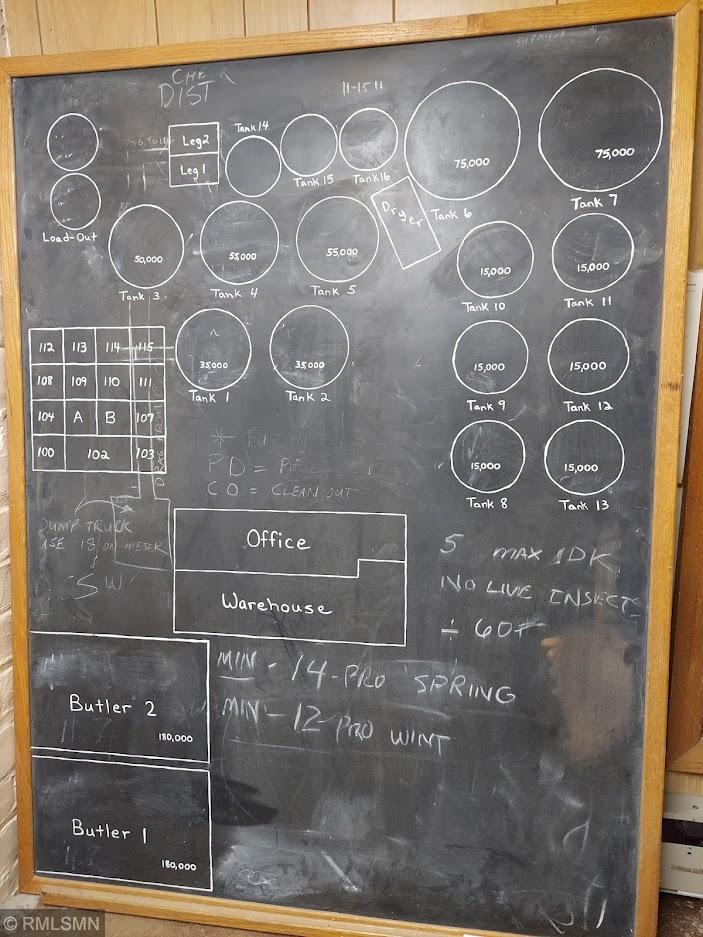 DIST
11-15 11
Leg 2
Leg 1
Tank 14
Tank 15
Tank 16
75,000
Tank 6
75,000
Tank 7
Load-Out
Dryer
50,000
Tank 3
55,000
Tank 4
55,000
Tank 5
15,000
Tank 10
15,000
Tank 11
112 113 114 115
108 109 110 111
104 A B 107
100 102 103
35,000
Tank 1
35,000
Tank 2
15,000
Tank 9
15,000
Tank 12
15,000
Tank 8
15,000
Tank 13
PD =
CO = CLEAN OUT
DUMP TRUCK
USE 18 ON METER
SW
Office
Warehouse
5 MAX DK
NO LIVE INSECTS
÷ 60#
MIN - 14 - PRO SPRING
MIN - 12 - PRO WINT
Butler 2
180,000
Butler 1
180,000
© RMLSMN